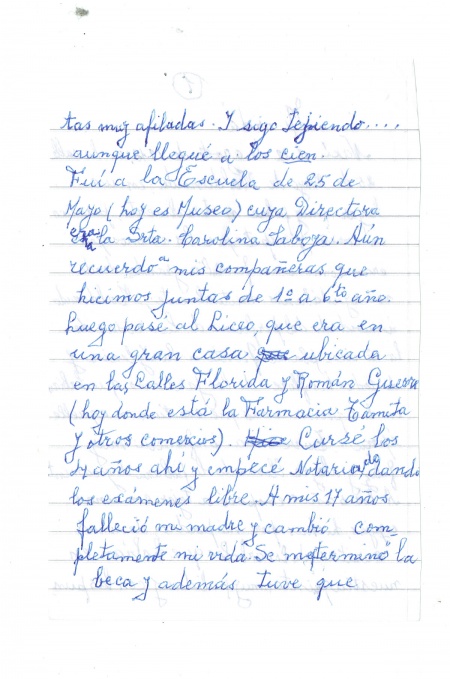 tas muy afiladas. Y sigo tejiendo....
aunque llegué a los cien.
Fuí a la Escuela de 25 de
Mayo (hoy es Museo) cuya Directora
era la Srta. Carolina Taboza. Aún
recuerdo a mis compañeras que
hicimos juntas de 1º a 6to año.
Luego pasé al Liceo, que era en
una gran casa ubicada
en las Calles Florida y Román Guerra
(hoy donde está la Farmacia
y otros comercios). Cursé los
4 años ahí y empecé Notariado dando
los exámenes libre. A mis 17 años
falleció mi madre y cambió com-
pletamente mi vida. Se me terminó la
beca y además tuve que